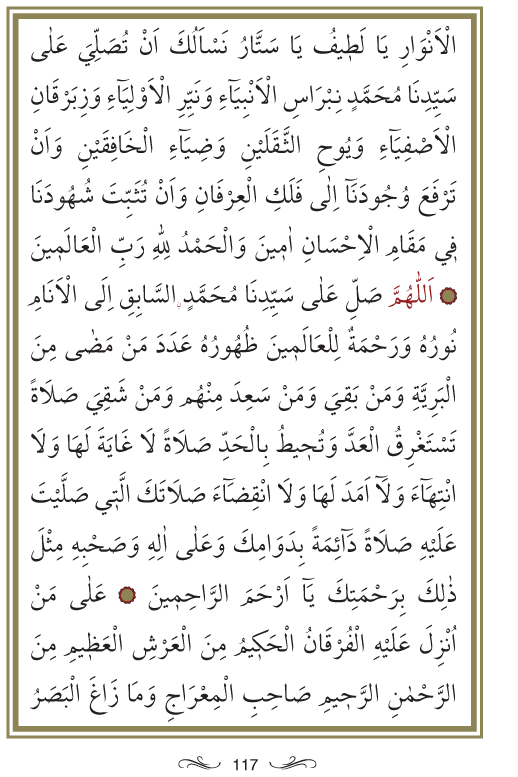 الْاَنْوَارِ يَا لَطِيفُ يَا سَتَّارُ نَسْاَلُكَ اَنْ تُصَلِّيَ عَلٰى
سَيِّدِنَا مُحَمَّدٍ نِبْرَاسِ الْاَنْبِيَٓاءِ وَنَيِّرِ الْاَوْلِيَٓاءِ وَزِبَرْقَانِ
الْاَصْفِيَٓاءِ وَيُوحِ الثَّقَلَيْنِ وَضِيَٓاءِ الْخَافِقَيْنِ وَاَنْ
تَرْفَعَ وُجُودَنَٓا اِلٰى فَلَكِ الْعِرْفَانِ وَاَنْ تُثَبِّتَ شُهُودَنَا
فِي مَقَامِ الْاِحْسَانِ اٰمِينَ وَالْحَمْدُ لِلّٰهِ رَبِّ الْعَالَمِينَ
اَللّٰهُمَّ صَلِّ عَلٰى سَيِّدِنَا مُحَمَّدٍ السَّابِقِ اِلَى الْاَنَامِ
نُورُهُ وَرَحْمَةٌ لِلْعَالَمِينَ ظُهُورُهُ عَدَدَ مَنْ مَضٰى مِنَ
الْبَرِيَّةِ وَمَنْ بَقِيَ وَمَنْ سَعِدَ مِنْهُم وَمَنْ شَقِيَ صَلَاةً
تَسْتَغْرِقُ الْعَدَّ وَتُحِيطُ بِالْحَدِّ صَلَاةً لَا غَايَةَ لَهَا وَلَا
انْتِهَٓاءَ وَلَٓا اَمَدَ لَهَا وَلَا انْقِضَٓاءَ صَلَاتَكَ الَّتِي صَلَّيْتَ
عَلَيْهِ صَلَاةً دَٓائِمَةً بِدَوَامِكَ وَعَلٰى اٰلِهِ وَصَحْبِهِ مِثْلَ
ذٰلِكَ بِرَحْمَتِكَ يَٓا اَرْحَمَ الرَّاحِمِينَ عَلٰى مَنْ
اُنْزِلَ عَلَيْهِ الْفُرْقَانُ الْحَكِيمُ مِنَ الْعَرْشِ الْعَظِيمِ مِنَ
الرَّحْمٰنِ الرَّحِيمِ صَاحِبِ الْمِعْرَاجِ وَمَا زَاغَ الْبَصَرُ
117